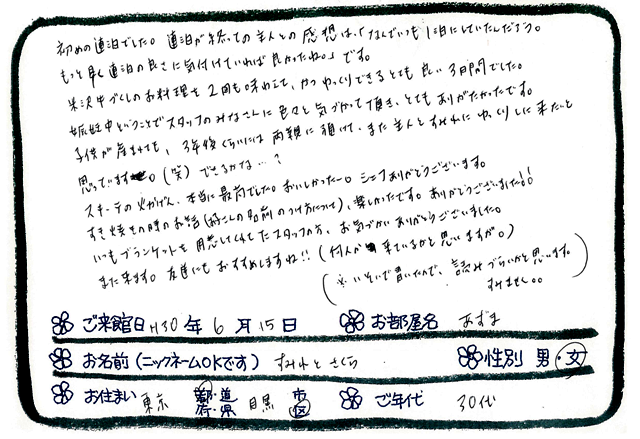 初めの連泊でした。連泊が終っての主人との感想は、「なんでいつも1泊にしていたんだろう。
もっと早く連泊の良さに気付けていれば良かったね。」です。
米沢牛づくしのお料理を2回も味わえて、かつゆっくりできるとても良い3日間でした。
妊娠中ということでスタッフのみなさんに色々と気づかって頂き、とてもありがたかったです。
子供が産まれても、3年後くらいには両親に預けて、また主人とすみれにゆっくりしに来たいと
思っています。(笑)できるかな…?
ステーキの火かげん、本当に最高でした。おいしかったー。シェフありがとうございます。
すき焼きの時のお話(お子さんの名前のつけ方について)、楽しかったです。ありがとうございました!!
いつもブランケットを用意してくれてたスタッフの方、お気づかいありがとうございました。
また来ます。友達にもおすすめしますね!!(何人か来ているかと思いますが。)
(※いそいで書いたので、読みづらいかと思います。
すみません。)
ご来館日 H30年6月15日 お部屋名 あずま
お名前(ニックネームOKです) すみれとさくら 性別 男・女
お住まい 東京 都・道・府・県 目黒 市・区 ご年代 30代